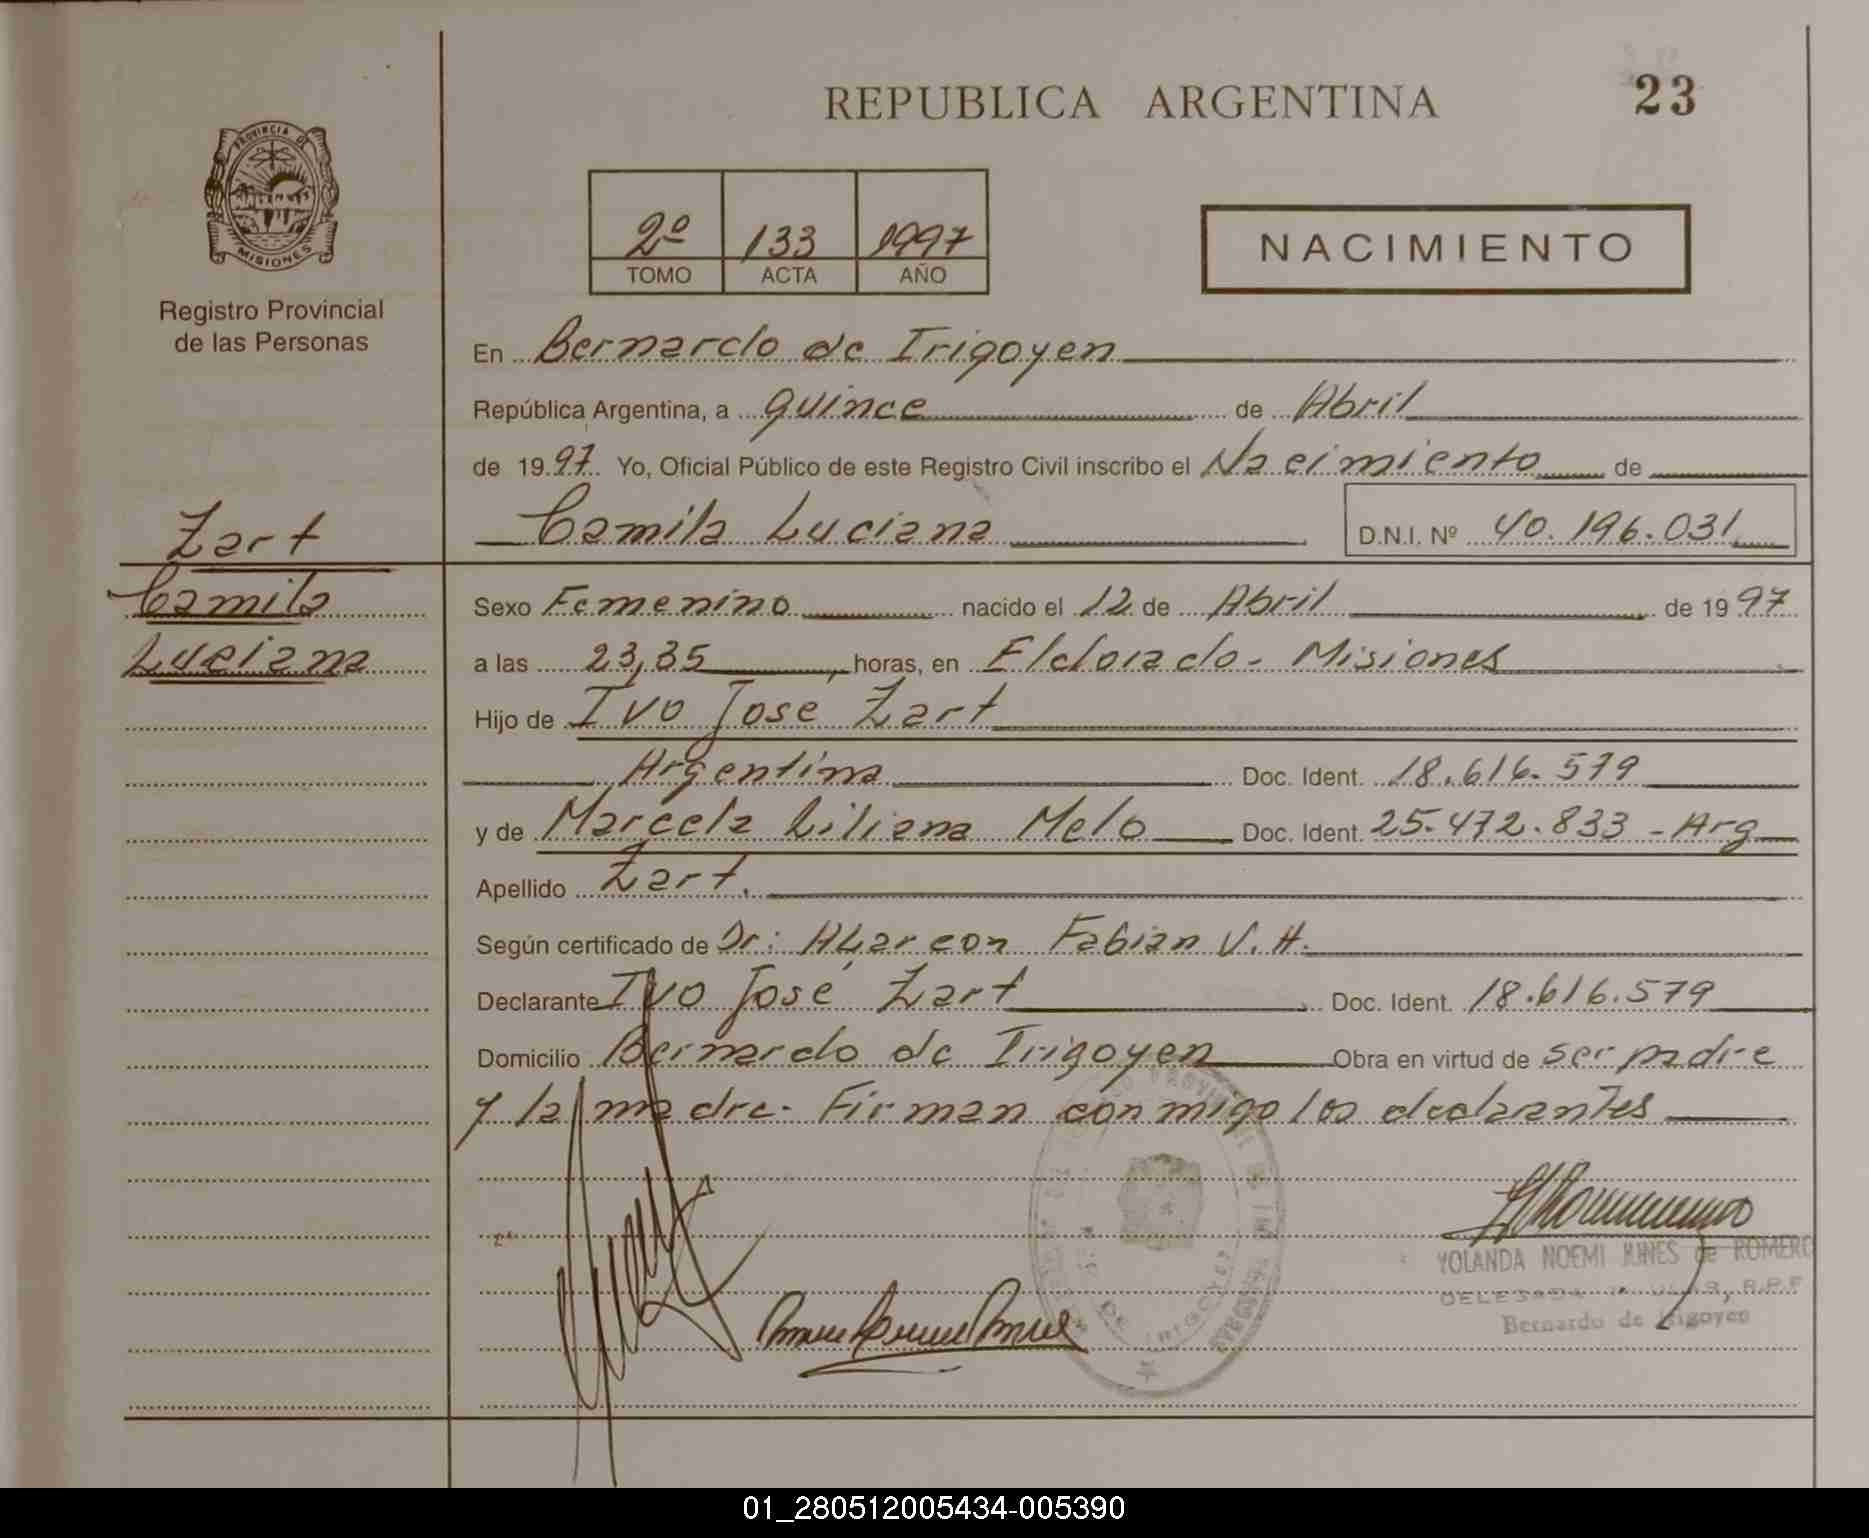 REPUBLICA ARGENTINA
23
PROVINCIA DE
MISIONES
Registro Provincial
de las Personas
2º 133 1997
TOMO ACTA AÑO
NACIMIENTO
En Bernardo de Irigoyen
República Argentina, a quince de Abril
de 1997 Yo, Oficial Público de este Registro Civil inscribo el Nacimiento de
Camila Luciana D.N.I. Nº 40.196.031
Zart
Camila
Luciana
Sexo Femenino nacido el 12 de Abril de 1997
a las 23,35 horas, en Eldorado - Misiones
Hijo de Ivo José Zart
Argentina Doc. Ident. 18.616.579
y de Marcela Liliana Melo Doc. Ident. 25.472.833 - Arg
Apellido Zart.
Según certificado de Dr: Fabian V. H.
Declarante Ivo José Zart Doc. Ident. 18.616.579
Domicilio Bernardo de Irigoyen Obra en virtud de ser padre
y la madre. Firman conmigo los declarantes
YOLANDA NOEMI de ROMERO
DELEGADA TITULAR, R.P.P
Bernardo de Irigoyen
DE IRIGOYEN
01_280512005434-005390